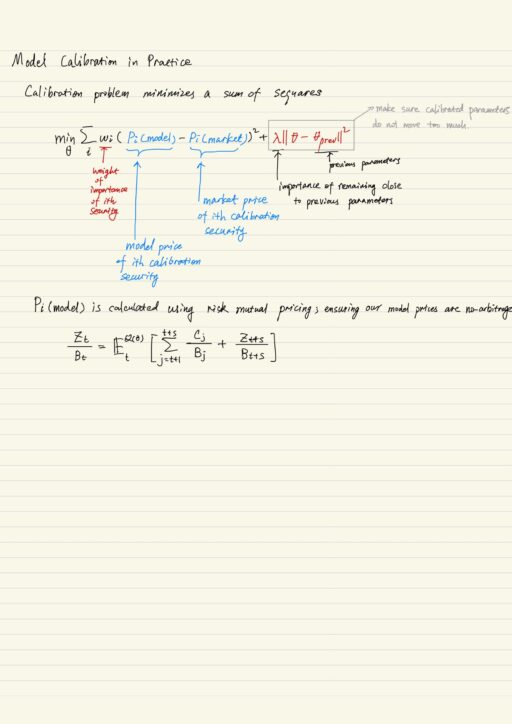 Model Calibration in Practice
Calibration problem minimizes a sum of sequares
make sure calibrated parameters
do not move too much.
min_θ ∑_i w_i ( P_i(model) − P_i(market) )² + λ‖θ − θ_prev‖²
previous parameters
weight of importance of ith security
importance of remaining close
to previous parameters
market price
of ith calibration
security
model price
of ith calibration
security
P_i(model) is calculated using risk mutual pricing; ensuring our model prices are no-arbitrage
Z_t / B_t = 𝔼_t^{Q(θ)} [ ∑_{j=t+1}^{t+s} C_j / B_j + Z_{t+s} / B_{t+s} ]